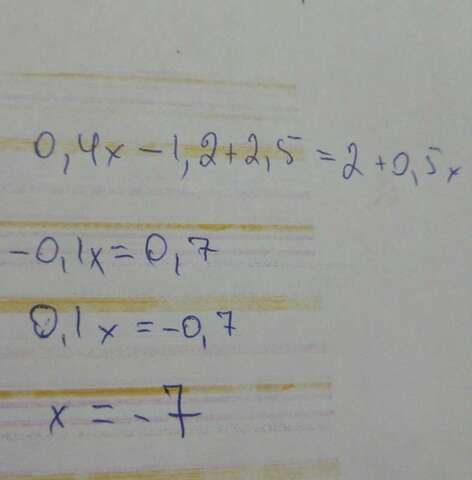 0,4x-1,2+2,5=2+0,5x
-0,1x=0,7
0,1x=-0,7
x=-7